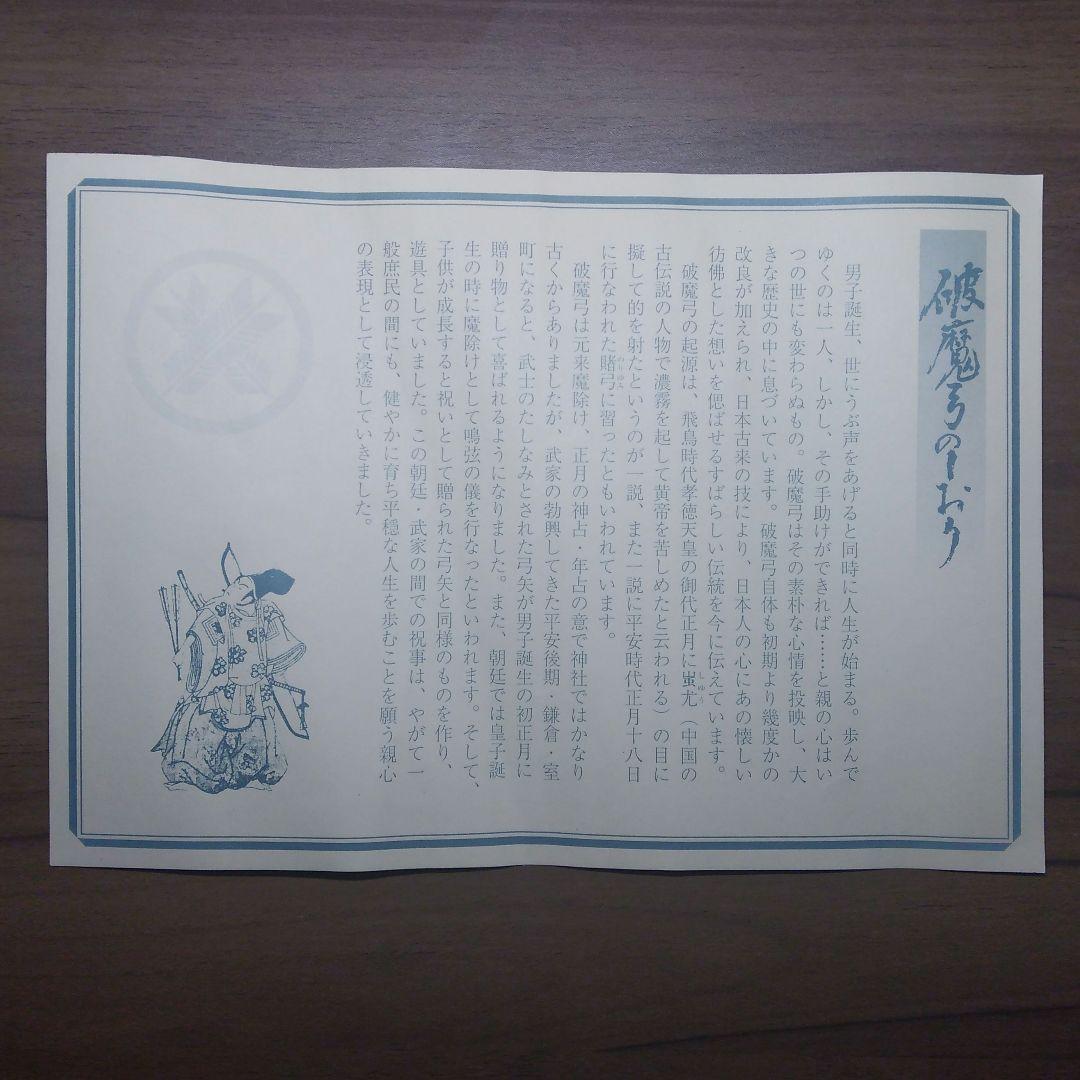 破魔弓のしおり
男子誕生、世にうぶ声をあげると同時に人生が始まる。歩んで
ゆくのは一人、しかし、その手助けができれば……と親の心はい
つの世にも変わらぬもの。破魔弓はその素朴な心情を投映し、大
きな歴史の中に息づいています。破魔弓自体も初期より幾度かの
改良が加えられ、日本古来の技により、日本人の心にあの懐しい
彷彿とした想いを偲ばせるすばらしい伝統を今に伝えています。
破魔弓の起源は、飛鳥時代孝徳天皇の御代正月に蚩尤（中国の
しゆう
古伝説の人物で濃霧を起して黄帝を苦しめたと云われる）の目に
擬して的を射たというのが一説、また一説に平安時代正月十八日
に行なわれた賭弓に習ったともいわれています。
のりゆみ
破魔弓は元来魔除け、正月の神占・年占の意で神社ではかなり
古くからありましたが、武家の勃興してきた平安後期・鎌倉・室
町になると、武士のたしなみとされた弓矢が男子誕生の初正月に
贈り物として喜ばれるようになりました。また、朝廷では皇子誕
生の時に魔除けとして鳴弦の儀を行なったといわれます。そして、
子供が成長すると祝いとして贈られた弓矢と同様のものを作り、
遊具としていました。この朝廷・武家の間での祝事は、やがて一
般庶民の間にも、健やかに育ち平穏な人生を歩むことを願う親心
の表現として浸透していきました。